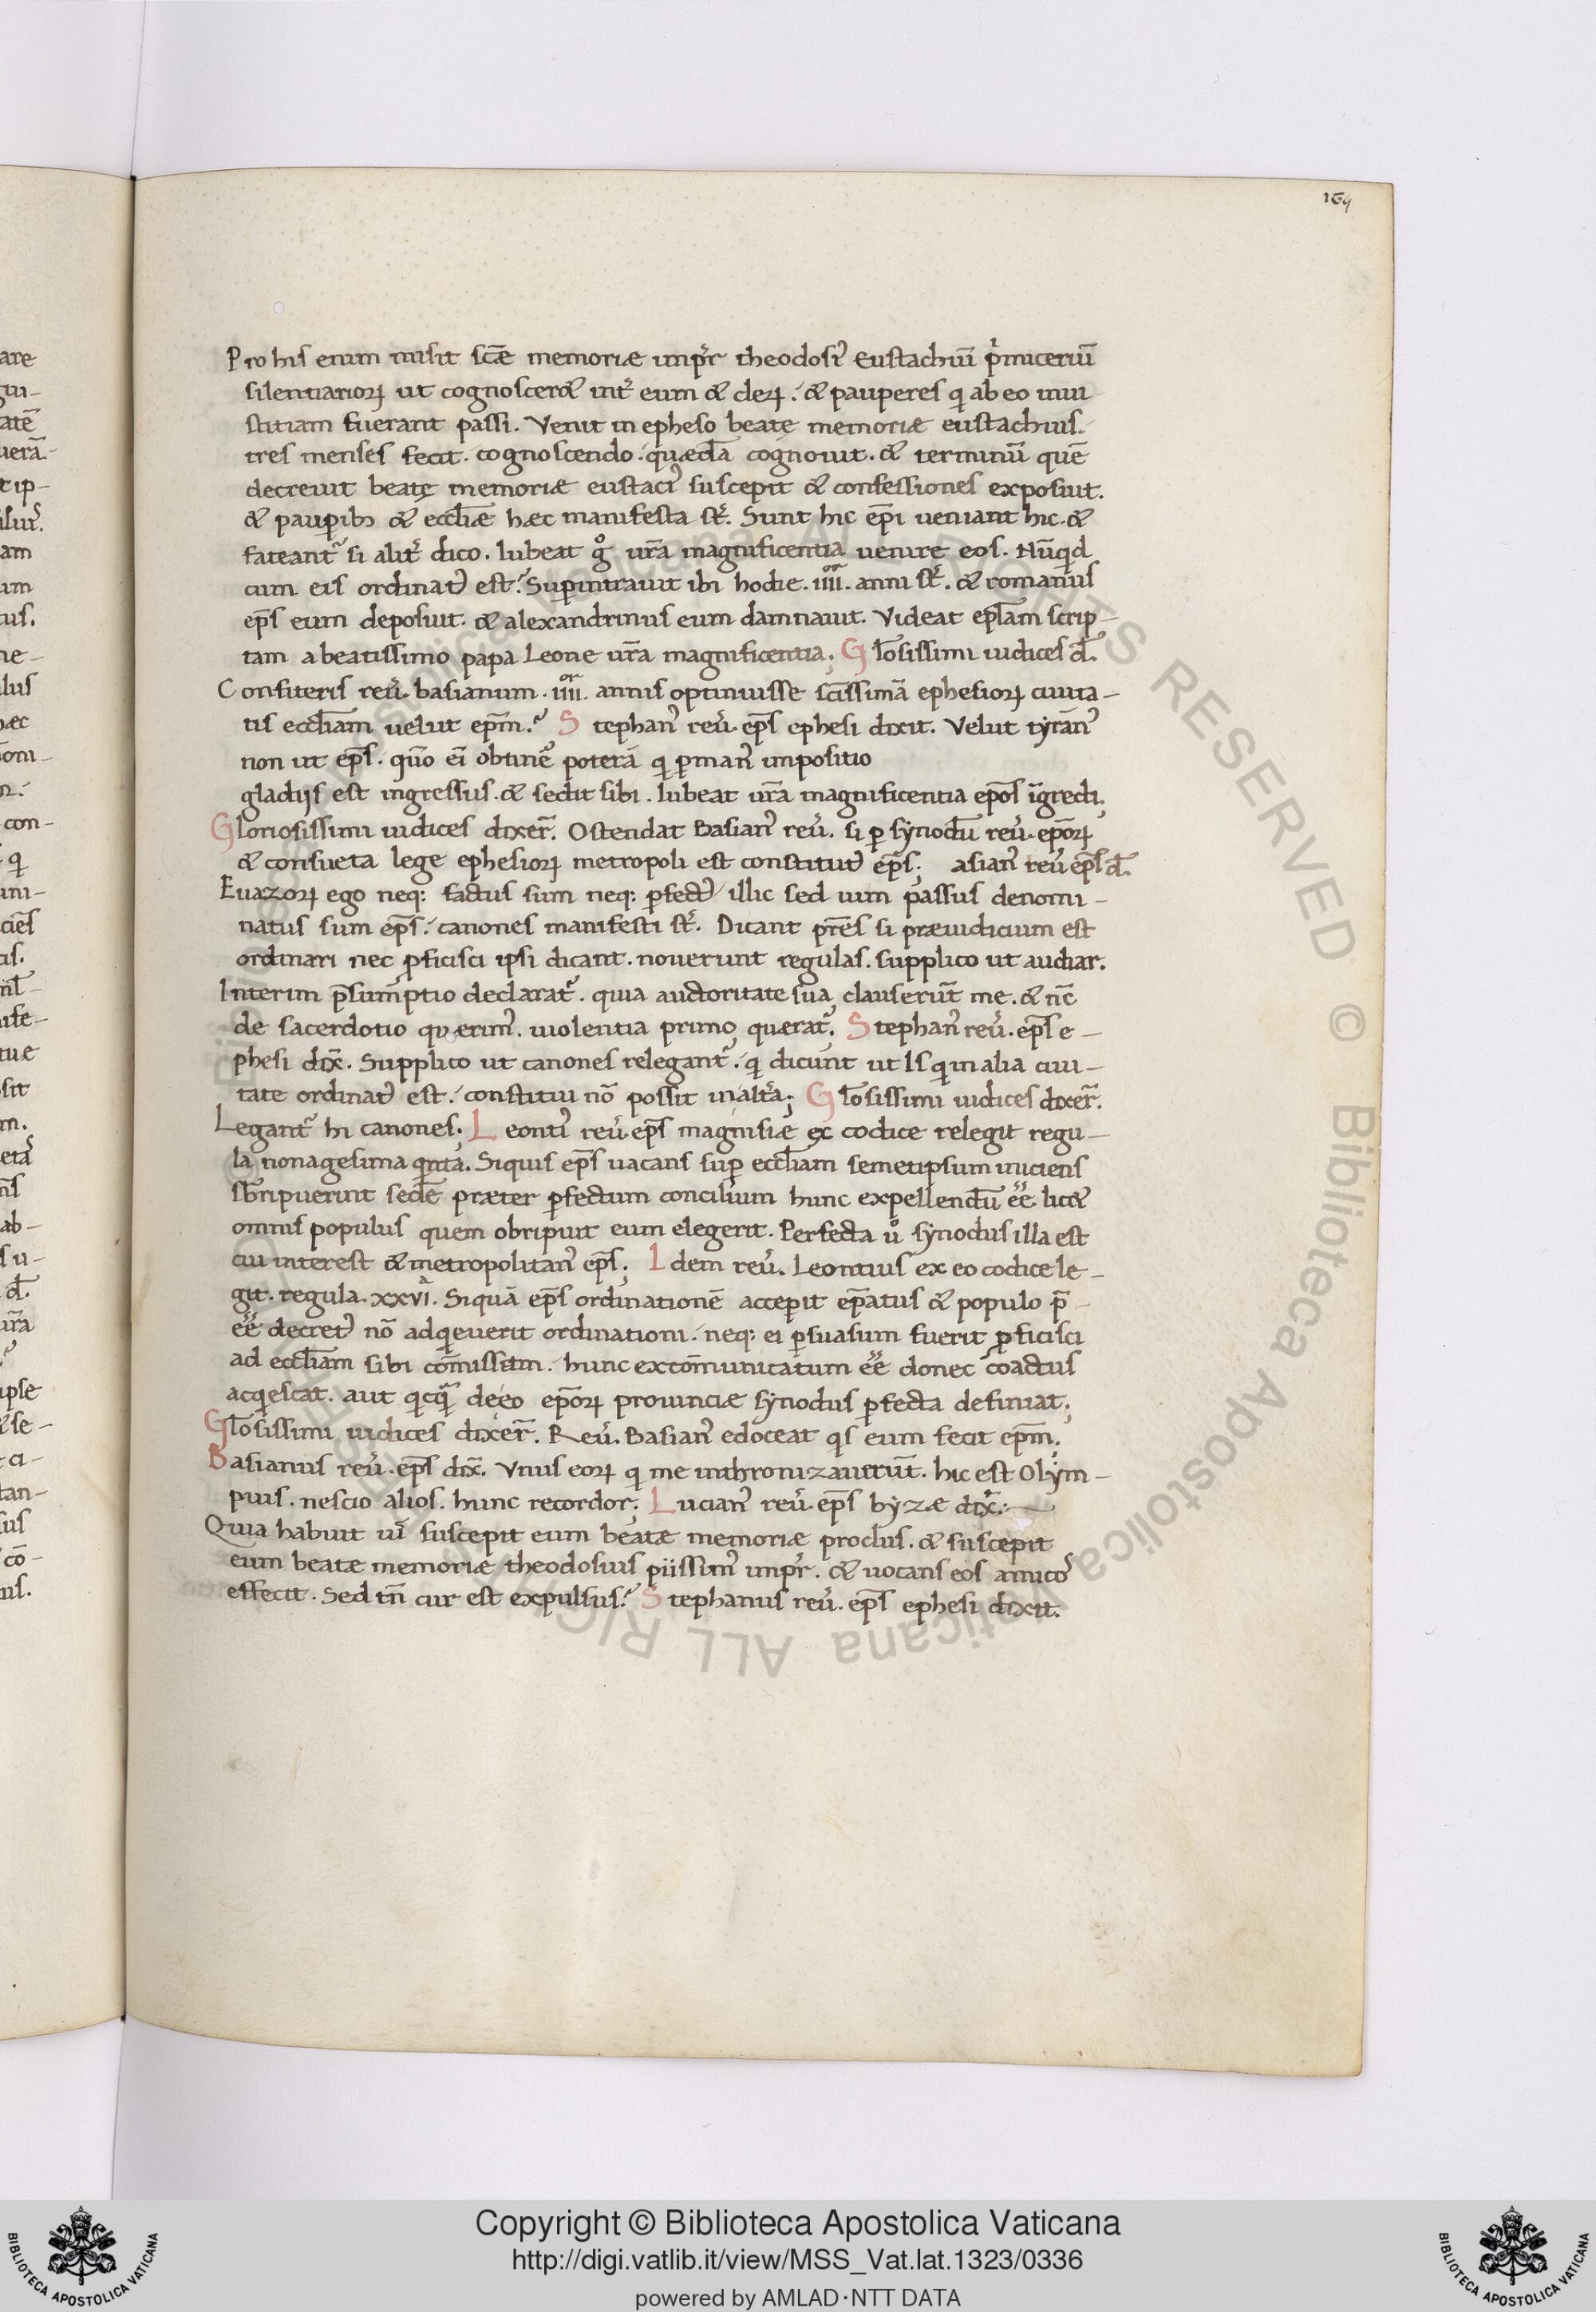 164
Pro his enim misit scæ memoriæ impr̄ theodosi᾿ Eustachiū p̄miceriū
silentiarioꝝ ut cognosceret int̄ eum & cleꝝ. & pauperes q̄ ab eo iniu
stitiam fuerant passi. Venit in epheso beatę memoriæ eustachius.
tres menses fecit. cognoscendo. quædā cognouit. & terminū quē
decreuit beatę memoriæ eustaci᾿ suscepit & confessiones exposuit.
& pauꝑibꝫ & eccłiæ hæc manifesta st̄. Sunt hic ep̄i ueniant hic. &
fateant᾿ si alit̄ dico. Iubeat g̊ ur̄a magnificentia uenire eos. Nūq̄d
cum eis ordinat᾿ est? Suꝑintrauit ibi hodie. iiii. anni st̄. & romanus
ep̄s eum deposuit. & alexandrinus eum damnauit. Videat epłam scrip-
tam a beatissimo papa Leone ur̄a magnificentia; Głosissimi iudices d̄.
Confiteris reū. basianum. iiii. annis optinuisse sc̄issimā ephesioꝝ ciuita-
tis eccłiam uelut ep̄m? Stephan᾿ reū. ep̄s ephesi dixit. Velut tyrān᾿
non ut ep̄s. quō ei obtinē poterā q̄ ꝑ man᾿ impositio
gladijs est ingressus. & sedit sibi. Iubeat ur̄a magnificentia ep̄os īgredi;
Gloriosissimi iudices dixer̄. Ostendat Basian᾿ reū. si ꝑ synodū reū. ep̄oꝝ
& consueta lege ephesioꝝ metropoli est constitut᾿ ep̄s; asian᾿ reū ep̄s d̄.
Euazoꝝ ego neq; factus sum neq; ꝓfect᾿ illic sed uim passus denomi-
natus sum ep̄s. canones manifesti st̄. Dicant pr̄es si præiudicium est
ordinari nec ꝓficisci ipsi dicant. nouerunt regulas. supplico ut audiar.
Interim p̄sumptio declarat᾿. quia auctoritate sua, clauserūt me. & nē
de sacerdotio quærim᾿. uiolentia primo, quærat᾿; Stephan᾿ reū. ep̄s e-
phesi dix̄. Supplico ut canones relegant᾿. q̄ dicunt ut Is q̄ in alia ciui-
tate ordinat᾿ est. constitui nō possit in alt̄a; Głosissimi iudices dixer̄.
Legant᾿ hi canones; Leonti᾿ reū ep̄s magnisiæ ex codice relegit regu-
la nonagesima q̄nta. Siquis ep̄s uacans suꝑ eccłiam semetipsum iniciens
sb̄ripuerint sedē præter ꝑfectum concilium hunc expellendū eē. licet
omnis populus quem obripuit eum elegerit. Perfecta ů synodus illa est
cui interest & metropolitan᾿ ep̄s; Idem reū. Leontius ex eo codice le-
git. regula. xxvi. Siquā ep̄s ordinationē acceꝑit ep̄atus & populo p̄-
eē decret᾿ nō adq̄euerit ordinationi. neq; ei ꝑsuasum fuerit ꝓficisci
ad eccłiam sibi cōmissam. hunc excōmunicatum eē donec coactus
acq̄escat. aut q̄cq̄ de eo ep̄oꝝ prouinciæ synodus ꝑfecta definiat;
Głosissimi iudices dixer̄. Reū. Basian᾿ edoceat q̄s eum fecit ep̄m;
Basianus reū. ep̄s dix̄. Vnus eoꝝ q̄ me inthronizauerūt. hic est Olym-
pius. nescio alios. hunc recordor; Lucian᾿ reū. ep̄s byzæ dix̄.
Quia habuit ui suscepit eum beatæ memoriæ proclus. & suscepit
eum beatæ memoriæ theodosius piissim᾿ impr̄. & uocans eos amico᾿
effecit. Sed tn̄ cur est expulsus? Stephanus reū. ep̄s ephesi dixit.
Copyright © Biblioteca Apostolica Vaticana
http://digi.vatlib.it/view/MSS_Vat.lat.1323/0336
powered by AMLAD·NTT DATA